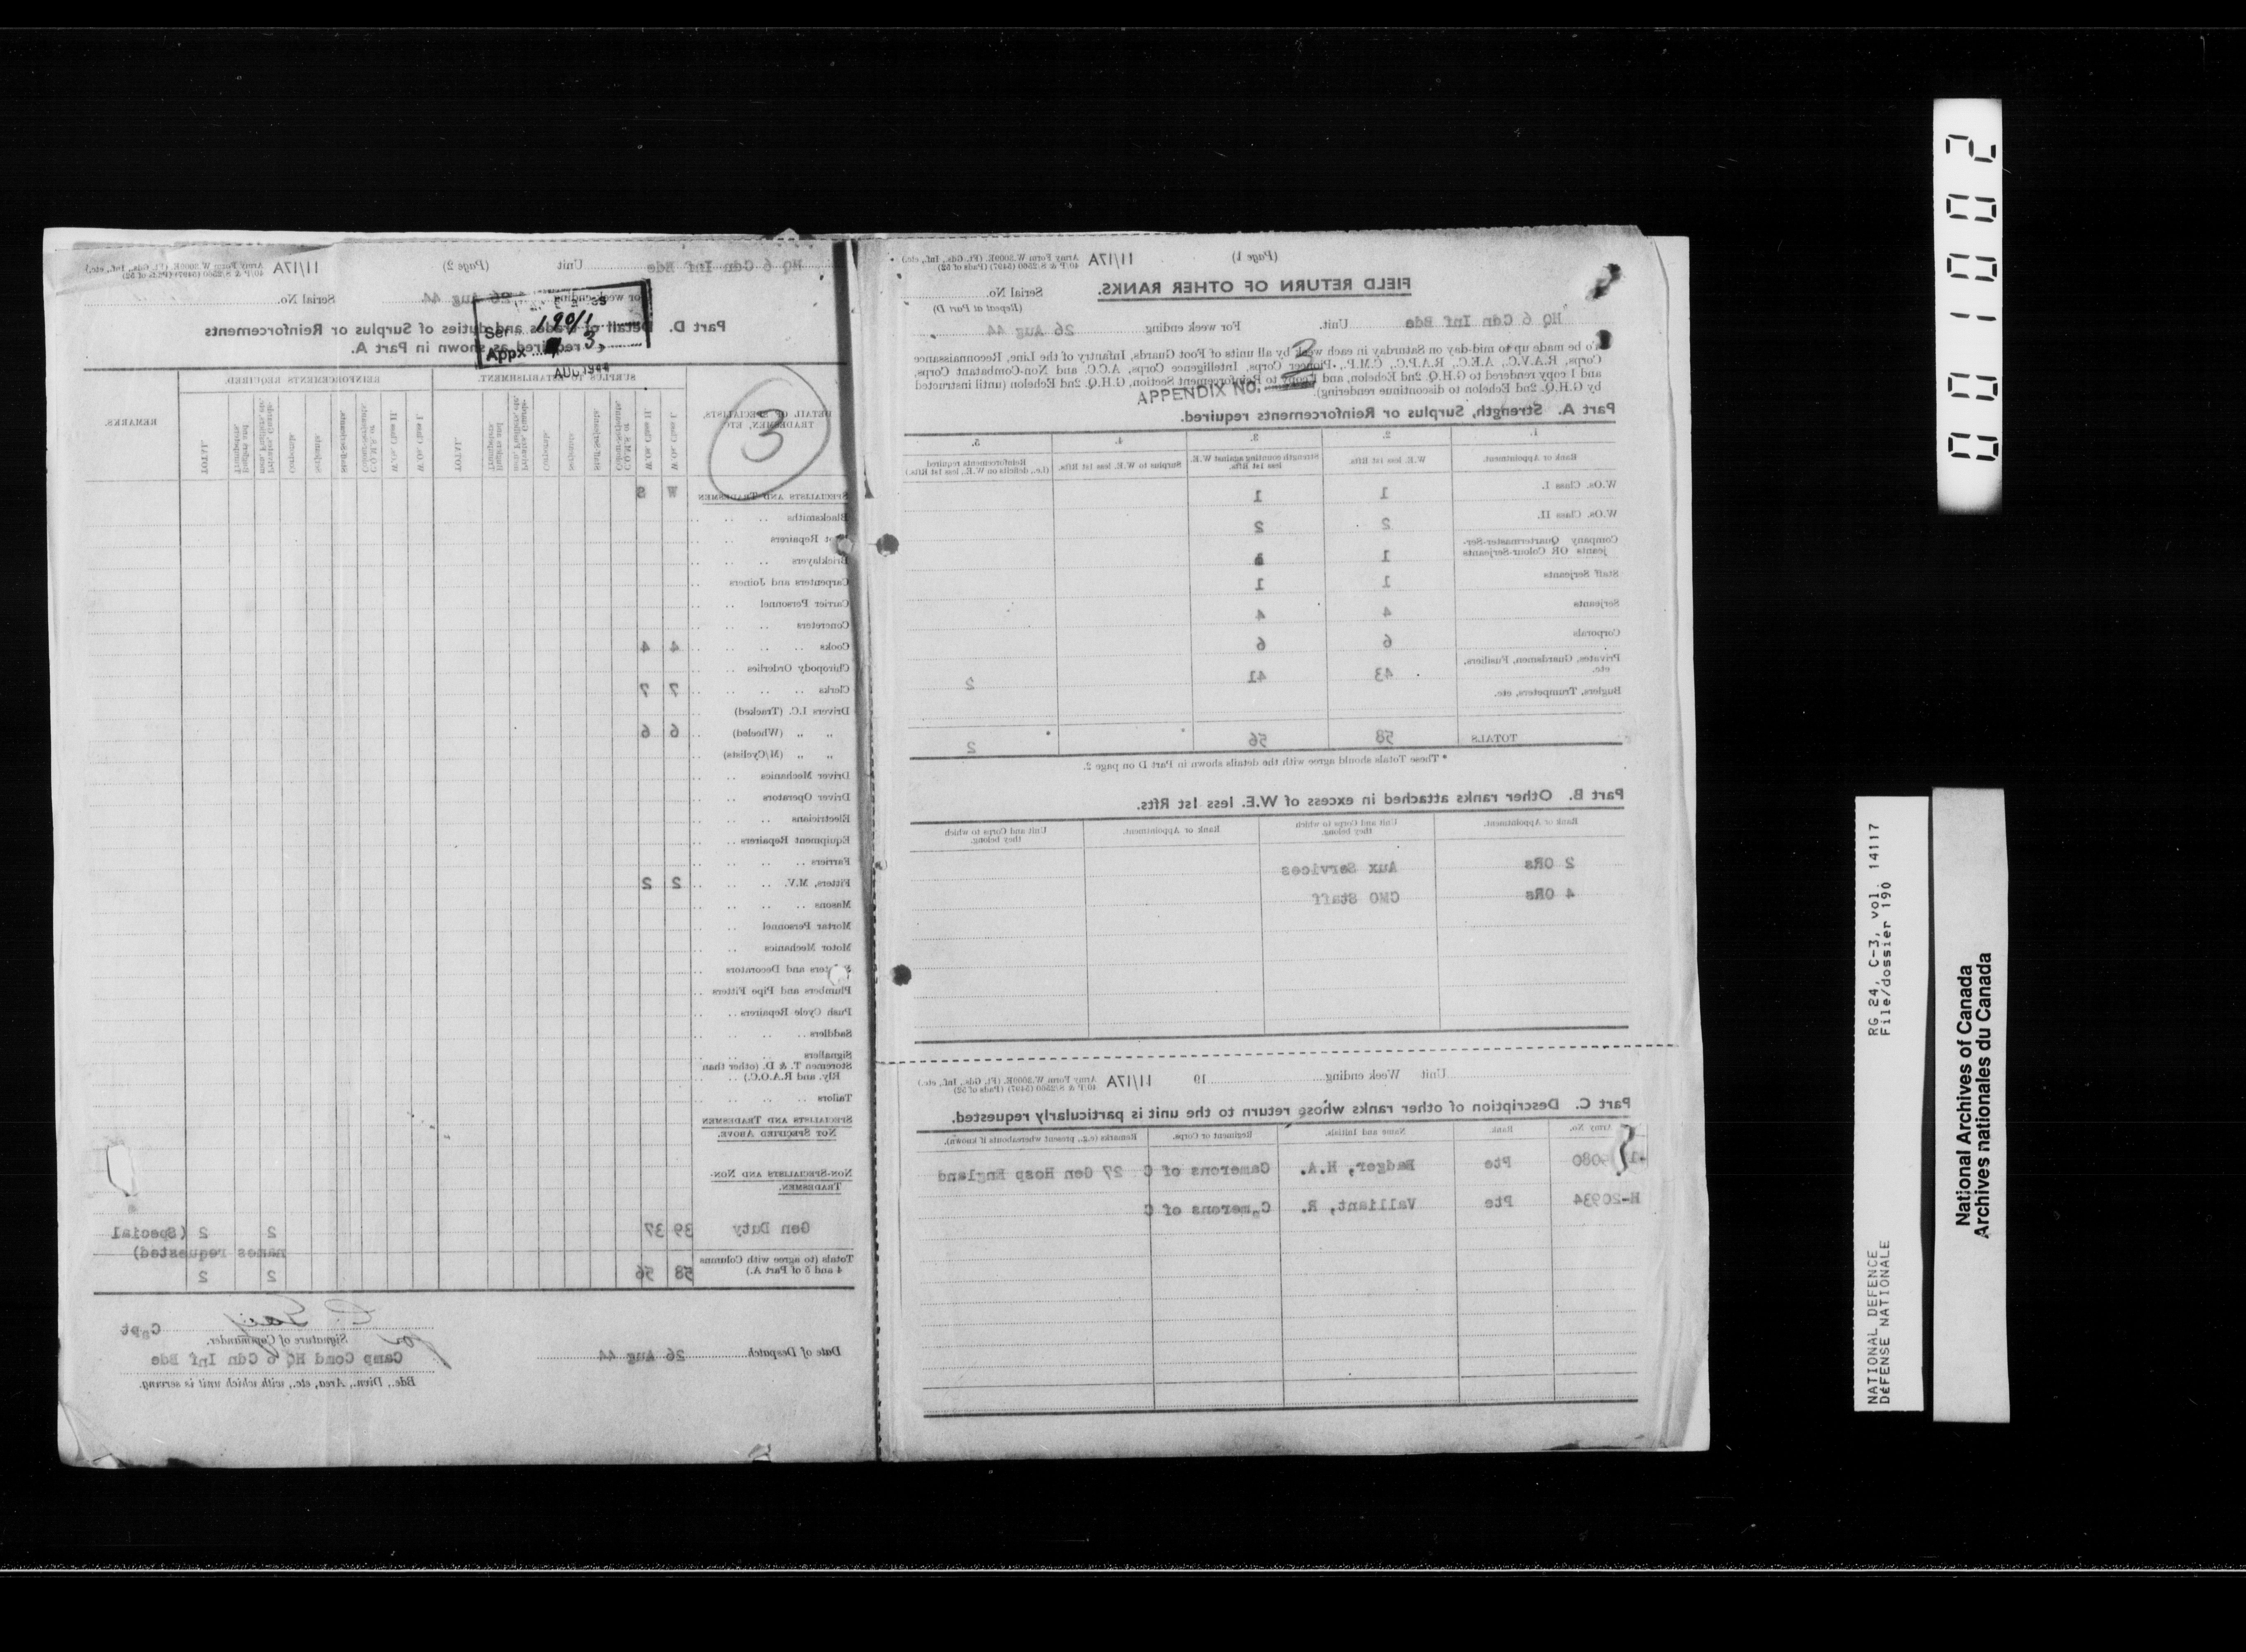 (Page 1)
Army Form W.3009E. (Ft. Gds., Inf., etc.)
11/17A
40/P & S/2560 (5497) (Pads of 52)
FIELD RETURN OF OTHER RANKS.
Serial No.
(Repeat at Part D)
HQ 6 Cdn Inf Bde Unit. For week ending 26 Aug 44
To be made up to mid-day on Saturday in each week by all units of Foot Guards, Infantry of the Line, Reconnaissance
Corps, R.A.V.C., A.E.C., R.A.P.C., C.M.P., Pioneer Corps, Intelligence Corps, A.C.C. and Non-Combatant Corps,
and 1 copy rendered to G.H.Q. 2nd Echelon, and to Reinforcement Section, G.H.Q. 2nd Echelon (until instructed
by G.H.Q. 2nd Echelon to discontinue rendering).
APPENDIX NO. 3
Part A. Strength, Surplus or Reinforcements required.
1. 2. 3. 4. 5.
Rank or Appointment. W.E. less 1st Rfts. Strength counting against W.E. less 1st Rfts. Surplus to W.E. less 1st Rfts. Reinforcements required (i.e., deficits on W.E., less 1st Rfts.)
W.Os. Class I. 1 1
W.Os. Class II. 2 2
Company Quartermaster-Ser-
jeants OR Colour-Serjeants 1
Staff Serjeants 1 1
Serjeants 4 4
Corporals 6 6
Privates, Guardsmen, Fusiliers,
etc. 43 41 2
Buglers, Trumpeters, etc.
TOTALS 58 56 * * 2
* These Totals should agree with the details shown in Part D on page 2.
Part B. Other ranks attached in excess of W.E. less 1st Rfts.
Rank or Appointment. Unit and Corps to which they belong. Rank or Appointment. Unit and Corps to which they belong.
2 ORs Aux Services
4 ORs CMO Staff
Unit Week ending 19 11/17A
Army Form W.3009E. (Ft. Gds., Inf., etc.)
40/P & S/2560 (5497) (Pads of 52)
Part C. Description of other ranks whose return to the unit is particularly requested.
Army No. Rank. Name and Initials. Regiment or Corps. Remarks (e.g., present whereabouts if known).
Pte Badger, H.A. Camerons of C 27 Gen Hosp England
H-20934 Pte Valliant, R. Camerons of C
HQ 6 Cdn Inf Bde Unit (Page 2) 11/17A
Army Form W.3009E. (Ft. Gds., Inf., etc.)
40/P & S/2560 (5497) (Pads of 52)
For week ending 26 Aug 44 Serial No.
Ser 190/1
Appx 3
AUG 1944
Part D. Detail of trades and duties of Surplus or Reinforcements
required as shown in Part A.
3
DETAIL OF SPECIALISTS, TRADESMEN, ETC.
SURPLUS TO ESTABLISHMENT. REINFORCEMENTS REQUIRED. REMARKS.
W.Os. Class I. W.Os. Class II. C.Q.M.S. or Colour-Serjeants. Staff-Serjeants. Serjeants. Corporals. Privates, Guardsmen, Fusiliers, etc. Buglers and Trumpeters. TOTAL.
W.Os. Class I. W.Os. Class II. C.Q.M.S. or Colour-Serjeants. Staff-Serjeants. Serjeants. Corporals. Privates, Guardsmen, Fusiliers, etc. Buglers and Trumpeters. TOTAL.
SPECIALISTS AND TRADESMEN W S
Blacksmiths
Boot Repairers
Bricklayers
Carpenters and Joiners
Carrier Personnel
Concreters
Cooks 4 4
Chiropody Orderlies
Clerks 7 7
Drivers I.C. (Tracked)
„ „ (Wheeled) 6 6
„ „ (M/Cyclists)
Driver Mechanics
Driver Operators
Electricians
Equipment Repairers
Farriers
Fitters, M.V. 2 2
Masons
Mortar Personnel
Motor Mechanics
and Decorators
Plumbers and Pipe Fitters
Push Cycle Repairers
Saddlers
Signallers
Storemen T. & D. (other than
Rly. and R.A.O.C.)
Tailors
SPECIALISTS AND TRADESMEN
NOT SPECIFIED ABOVE.
NON-SPECIALISTS AND NON-
TRADESMEN.
Gen Duty 39 37 2 2 (Special
names requested)
Totals (to agree with Columns
4 and 5 of Part A.) 58 56 2 2
Capt
Signature of Commander.
Date of Despatch 26 Aug 44
Camp Comd HQ 6 Cdn Inf Bde
Bde., Divn., Area, etc., with which unit is serving.
001002
NATIONAL DEFENCE RG 24, C-3, vol. 14117
DÉFENSE NATIONALE File/dossier 190
National Archives of Canada
Archives nationales du Canada